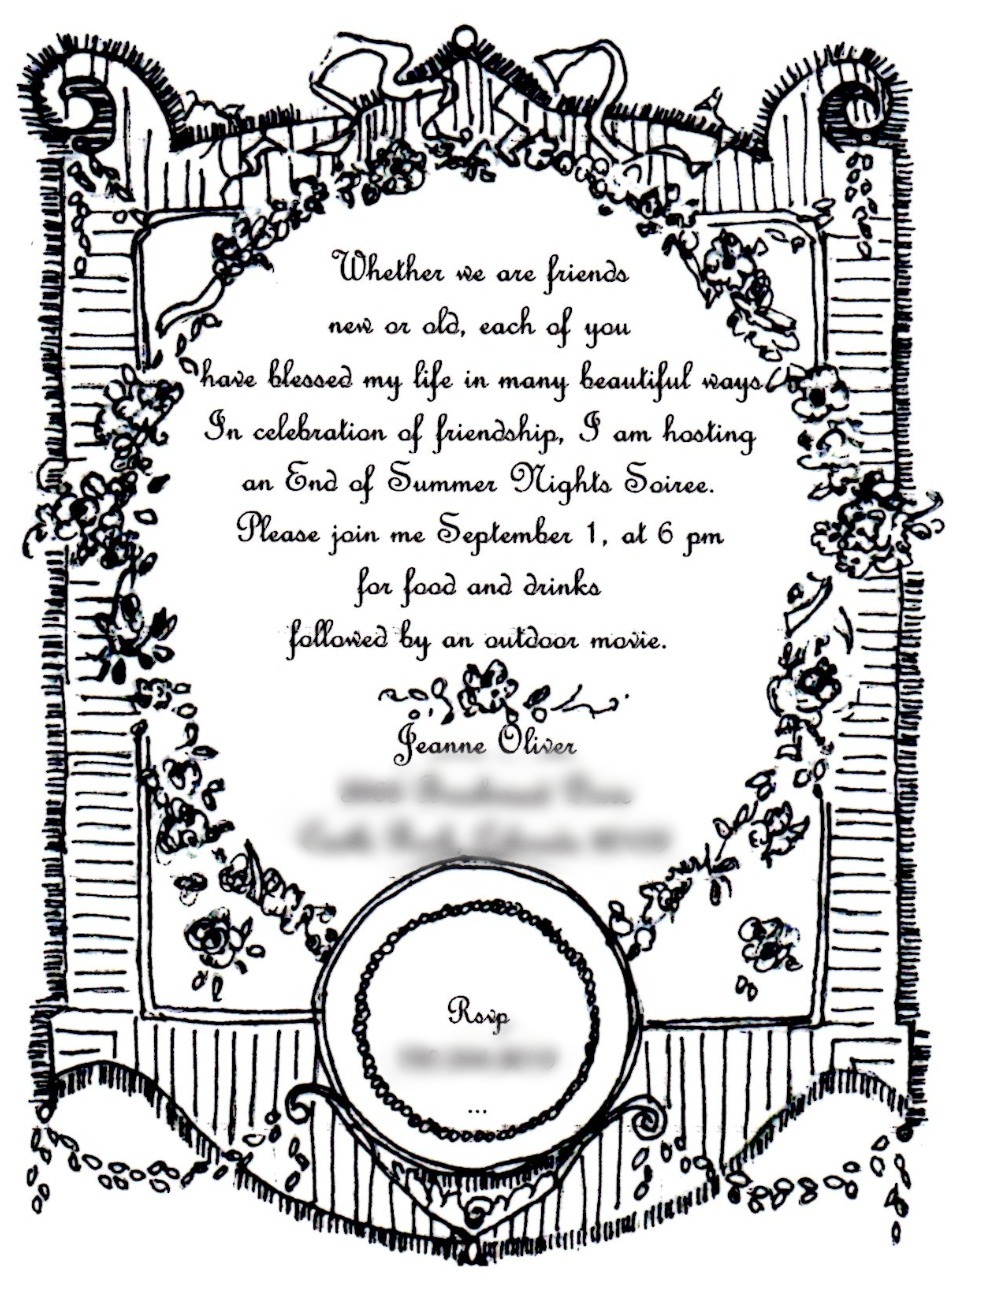 Whether we are friends
new or old, each of you
have blessed my life in many beautiful ways.
In celebration of friendship, I am hosting
an End of Summer Nights Soiree.
Please join me September 1, at 6 pm
for food and drinks
followed by an outdoor movie.
Jeanne Oliver
Rsvp
...